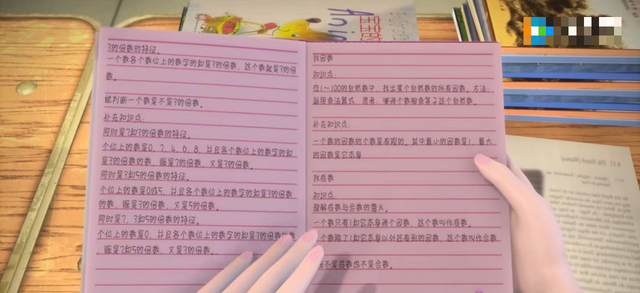 3的倍数的特征。
一个数各个数位上的数字的和是3的倍数，这个数就是3的倍
数。
能判断一个数是不是3的倍数。
补充知识点：
同时是2和3的倍数的特征。
个位上的数是0、2、4、6、8，并且各个数位上的数字的和
是3的倍数的数，既是2的倍数，又是3的倍数。
同时是3和5的倍数的特征。
个位上的数是0或5，并且各个数位上的数字的和是3的倍数
的数，既是3的倍数，又是5的倍数。
同时是2，3和5的倍数的特征。
个位上的数是0，并且各个数位上的数字的和是3的倍数的
既是2和5的倍数，又是3的倍数。
找因数
知识点：
在1～100的自然数中，找出某个自然数的所有因数。方法：
运用乘法算式，思考：哪两个数相乘等于这个自然数。
补充知识点：
一个数的因数的个数是有限的。其中最小的因数是1，最大
的因数是它本身
找质数
知识点
理解质数与合数的意义。
一个数只有1和它本身两个因数，这个数叫作质数。
一个数除了1和它本身以外还有别的因数，这个数叫作合数
不是质数也不是合数。